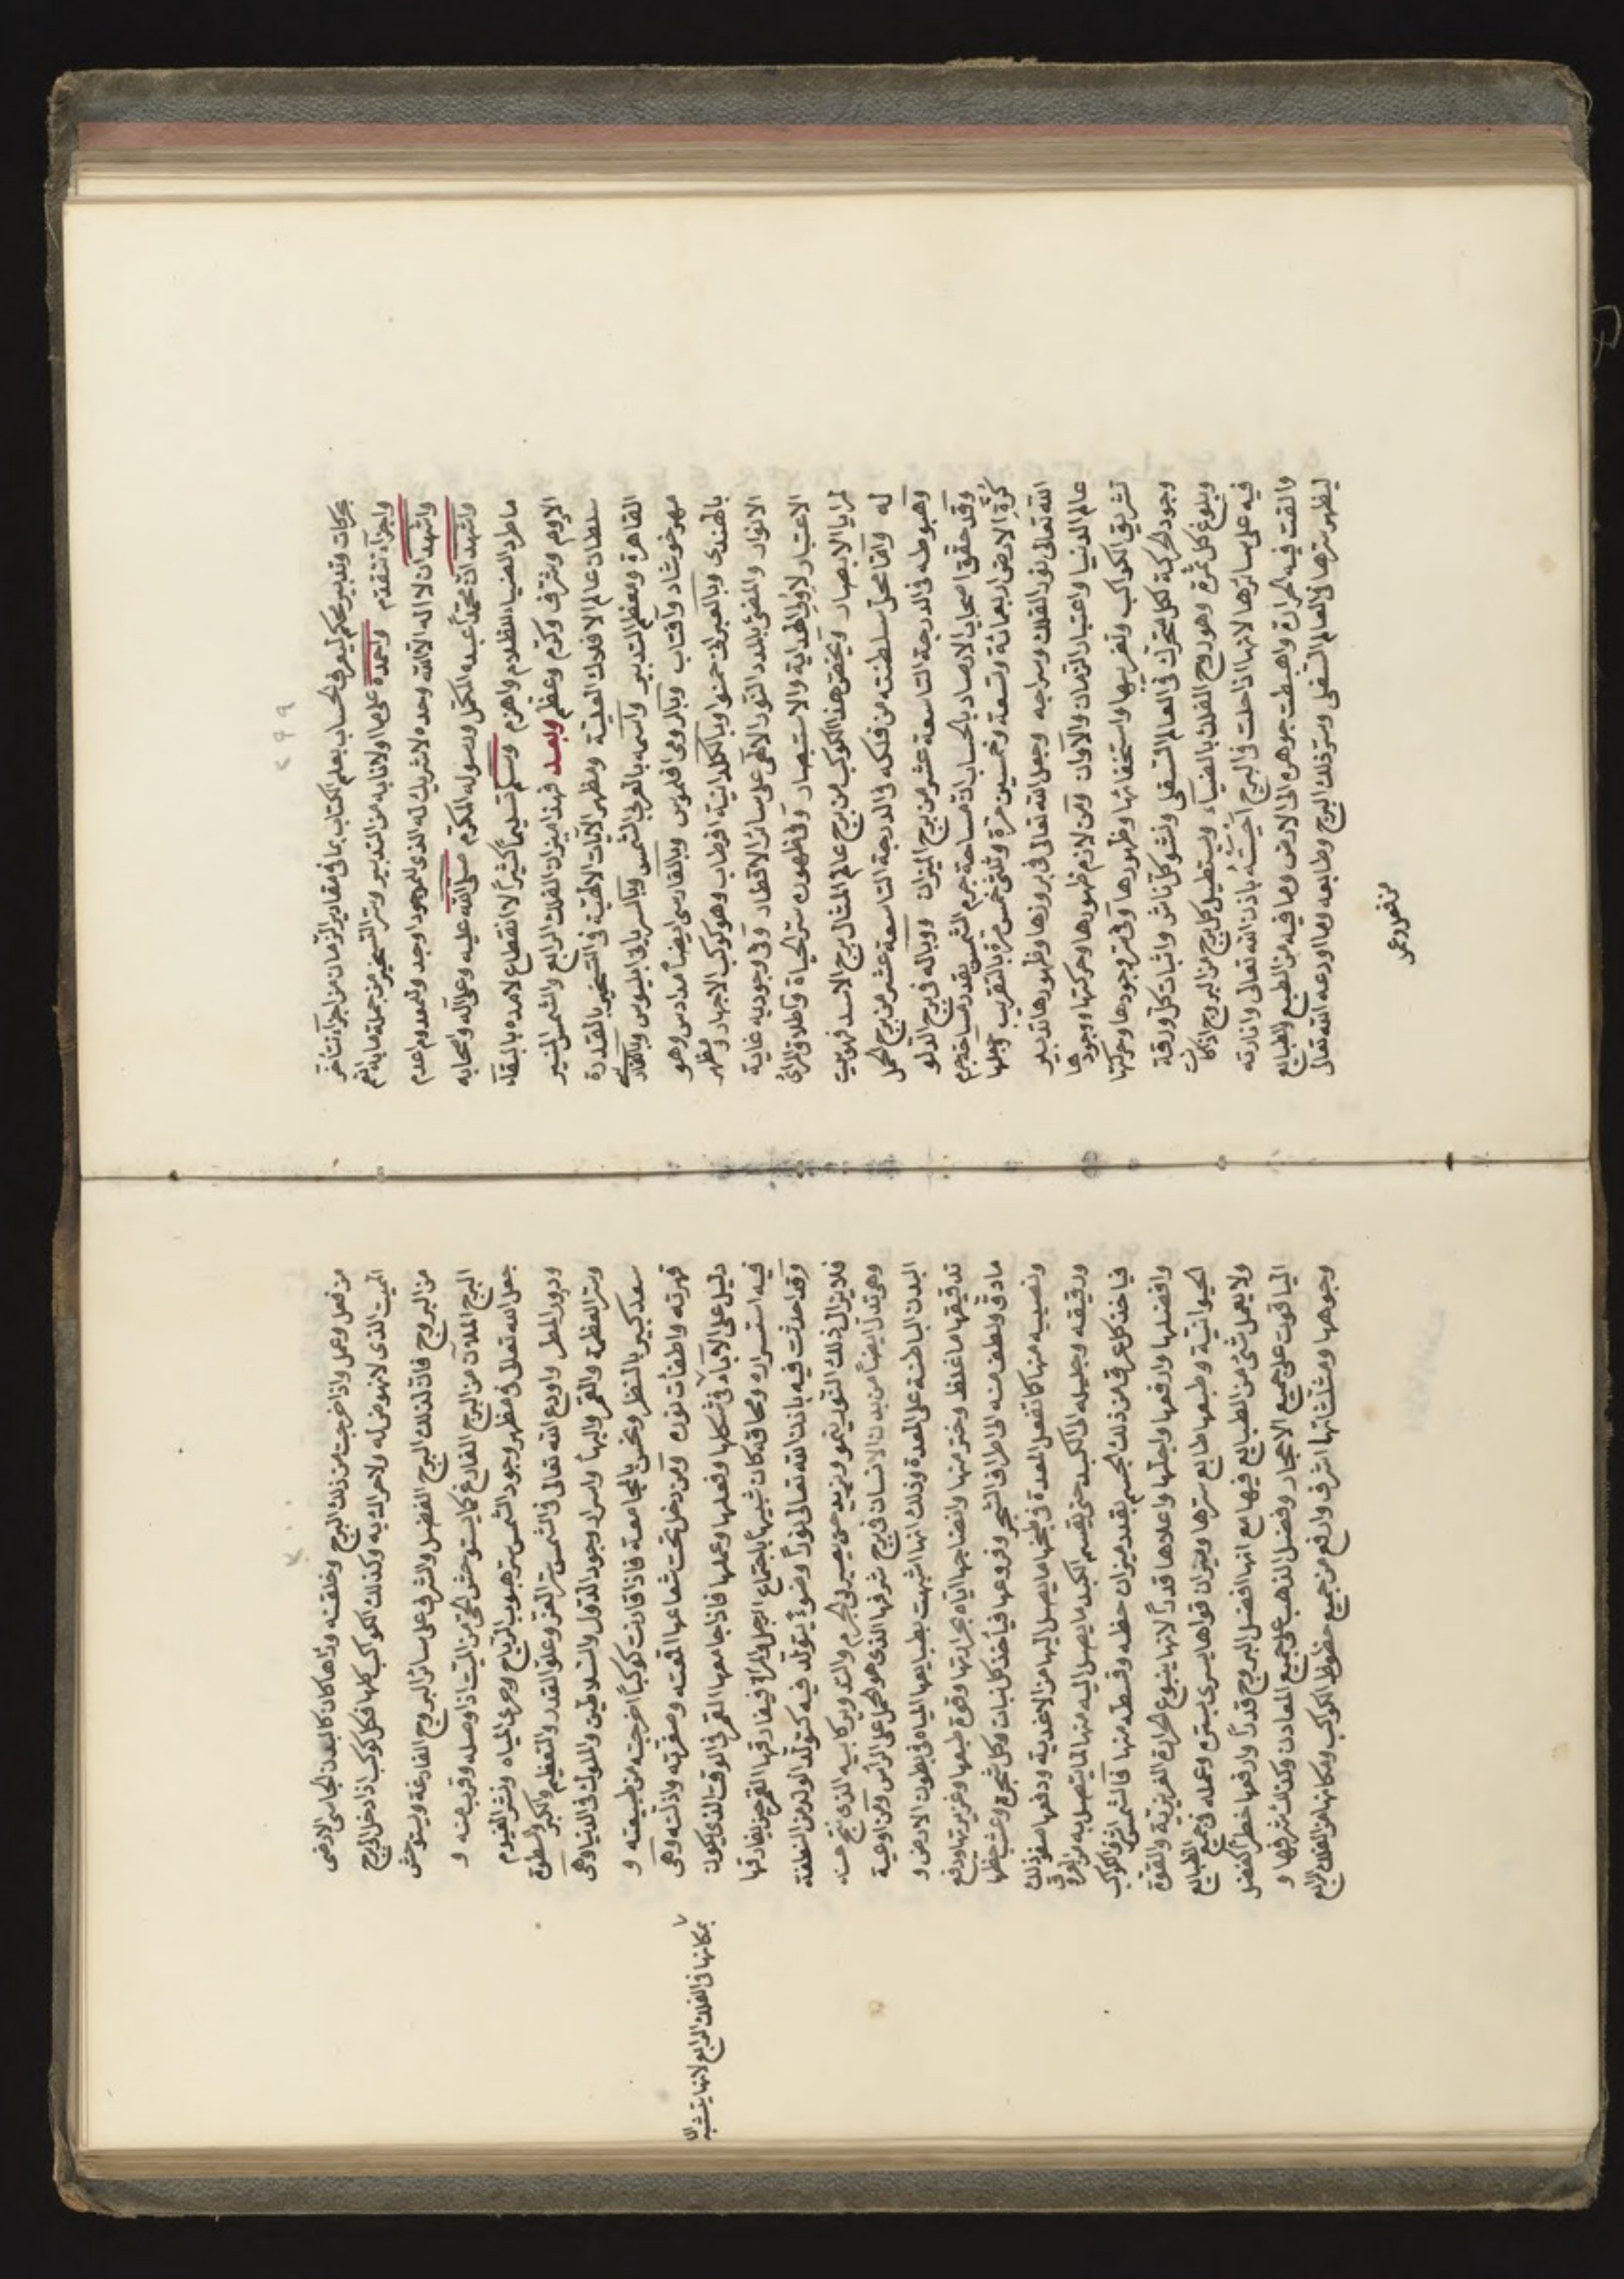 ٢٩٩
بحركات وتدبير محكم ليعرف الحساب بعلم الكتاب بما في مقادير الزمان من اجزآء تتأخر
واجزآء تتقدم واحمده على ما اولانا به من التدبير وسر التسخير من جملة ما به انعم
واشهد ان لا اله الا الله وحده لا شريك له الذى للموجود اوجد وللمعدوم اعدم
واشهد ان محمداً عبده المكمل ورسوله المكرم صلى الله عليه وعلى آله واصحابه
ما طرد الضياء الظلام واهزم وسلم تسليماً كثيراً لا انقطاع لامده بالبقاء
الادوم وشرف وكرم وعظم وبعد فهذا ميزان الفلك الرابع والشمس المنير
سلطان عالم الافلاك العلية ومظهر الآيات الالهية في التسخير بالقدرة
القاهرة ومعظم التدبير واسمه بالعربى الشمس وبالسريانى ايليوس وبالفارسى
مهر خورشاد وآفتاب وبالرومى افليموس وبالفارسى ايضاً مدادس وهو
بالهندى وبالعبرانى حمنوا وبالكلدانية افرطاب وهو كوكب الاجهار ومظهر
الانوار والمضئ بالمدد النور الالهى على سائر الاقطار وفي وجوديه غاية
الاعتبار لاولى الهداية والاستبصار وفي ظهوره سر الحياة واطلاق المرائى
لمرايا الابصار ويختص هذا الكوكب من بروج عالم المثال ببرج الاسد فهو بيت
له واما محل سلطنته من فلكه في الدرجة التاسعة عشر من برج الحمل
وهبوطه في الدرجة التاسعة عشر من برج الميزان ووباله في برج الدلو
وقد حقق اصحاب الارصاد بالحساب ان مساحة جرم الشمس بقدر مساحة جرم
كرة الارض اربعمائة وتسعة وخمسين مرة وثلثى خمس مرة بالتقريب وجعلها
الله تعالى نور الفلك وسراجه وجعل الله تعالى في بروزها وظهورها تدبير
عالم الدنيا واعتبار الزمان والآوان ومن لازم ظهورها وحركتها ووجودها
تشريق الكواكب وتغريبها واستخفائها وظهورها وفي سر وجودها وحركتها
وجود الحركة لكل متحرك في العالم السفلى ونشو كل ناش وانبات كل ورقة
وبلوغ كل ثمرة وهو روح الفلك بالضياء ويستطيل كل برج من البروج اذا كانت
فيه على سائرها لانها اذا حلت في البرج احيته باذن الله تعالى وانارته
والقت فيه الحرارة واهبطت جوهره الى الارض وما فيه من الطبع والطبايع
ليظهر سرها في العالم السفلى وسر ذلك البرج وطابعه وما اودعه الله تعالى
من نفوذ وعمل
٣٠٠
من فعل وعمل واذا خرجت من ذلك البرج وخلفته وراها كان كالمعدن الجاسى الارضى
الميت الذى لا نهوض له ولا حراك به وكذلك الكواكب كلها فكل كوكب اذا دخل البرج
من البروج فان لذلك البرج الفضل والشرف على سائر البروج الفارغة ويستوحش
البرج الملآن من البرج الفارغ كما يستوحش الحى من الميت اذا وصله وقرب منه و
جعل الله تعالى في مظهر وجود الشمس سر هبوب الرياح وجرى المياه ونشر الغيوم
ودرور المطر واودع الله تعالى في الشمس سر العز وعلو القدر والتعظيم والكبر والسطوة
وسر العظمة والقهر والبهاء واسرار وجود الدول والسلاطين والملوك في الدنيا وهى
سعد كبير بالنظر ونحس بالمجامعة فاذا قارنت كوكباً اخرجته من طبيعته و
قهرته واطفأت نوره ومن دخل تحت شعاعها اقعته وصغرته واذلته وهى
دليل على الآباء في شكلها وفعلها وعملها فاذا جامعها القمر في الوقت الذى يكون
فيه استسراره ومحاقه كان شبيهاً باجتماع الرجل والمرأة فيفارقها القمر حين يفارقها
وقد احدثت فيه باذن الله تعالى نوراً وضوءً يتولد فيه كتولد الولد من النطفة
فلا يزال ذلك النور ينمو ويزيد حتى يصير في الجرم والتدوير كابيه الذى نتج منه
وهى تدل ايضاً من بدن الانسان في برج شرفها الذى هو الحمل على الرأس ومن اوعية
البدن الباطنة على المعدة وذلك انها اشبهت بطبايعها المياه في بطون الارض و
تدقيقها ما غلظ وخثر منها وانضاجها اياه بحرارتها وقوة طبعها وغريزتها ودفع
ما دق ولطف منه الى اطراف الشجر وفروعها فيأخذ كل نبات وكل شجرة وعشب حظها
ونصيبه منها كما تفعل المعدة في طبخها ما يصل اليها من الاغذية ودفعها صفو ذلك
ورقيقه وجليله الى الكبد حتى يقسم الكبد ما يصل اليه منها الى ما يتصل به من العروق
فياخذ كل عرق من ذلك الجسم بقدر ميزان حظه وقسطه منها فالشمس اشرف الكواكب
وافضلها وارفعها واجلها واعلاها قدراً لانها ينبوع الحرارة الغريزية والقوة
الحيوانية وطبعها طابع سرها وميزان قواها يسرى بسره وعمله في جميع الطبايع
ولا يعمل شئ من الطبايع فيها مع انها افضل البروج قدراً وارفعها خطراً كفضل
الياقوت على جميع الاحجار وفضل الذهب على جميع المعادن وكذلك شرفها و
وجوهها ومثلثاتها اشرف وارفع من جميع حظوظ الكواكب ومكانها من الفلك الرابع
بمكانها في الفلك الرابع لانها